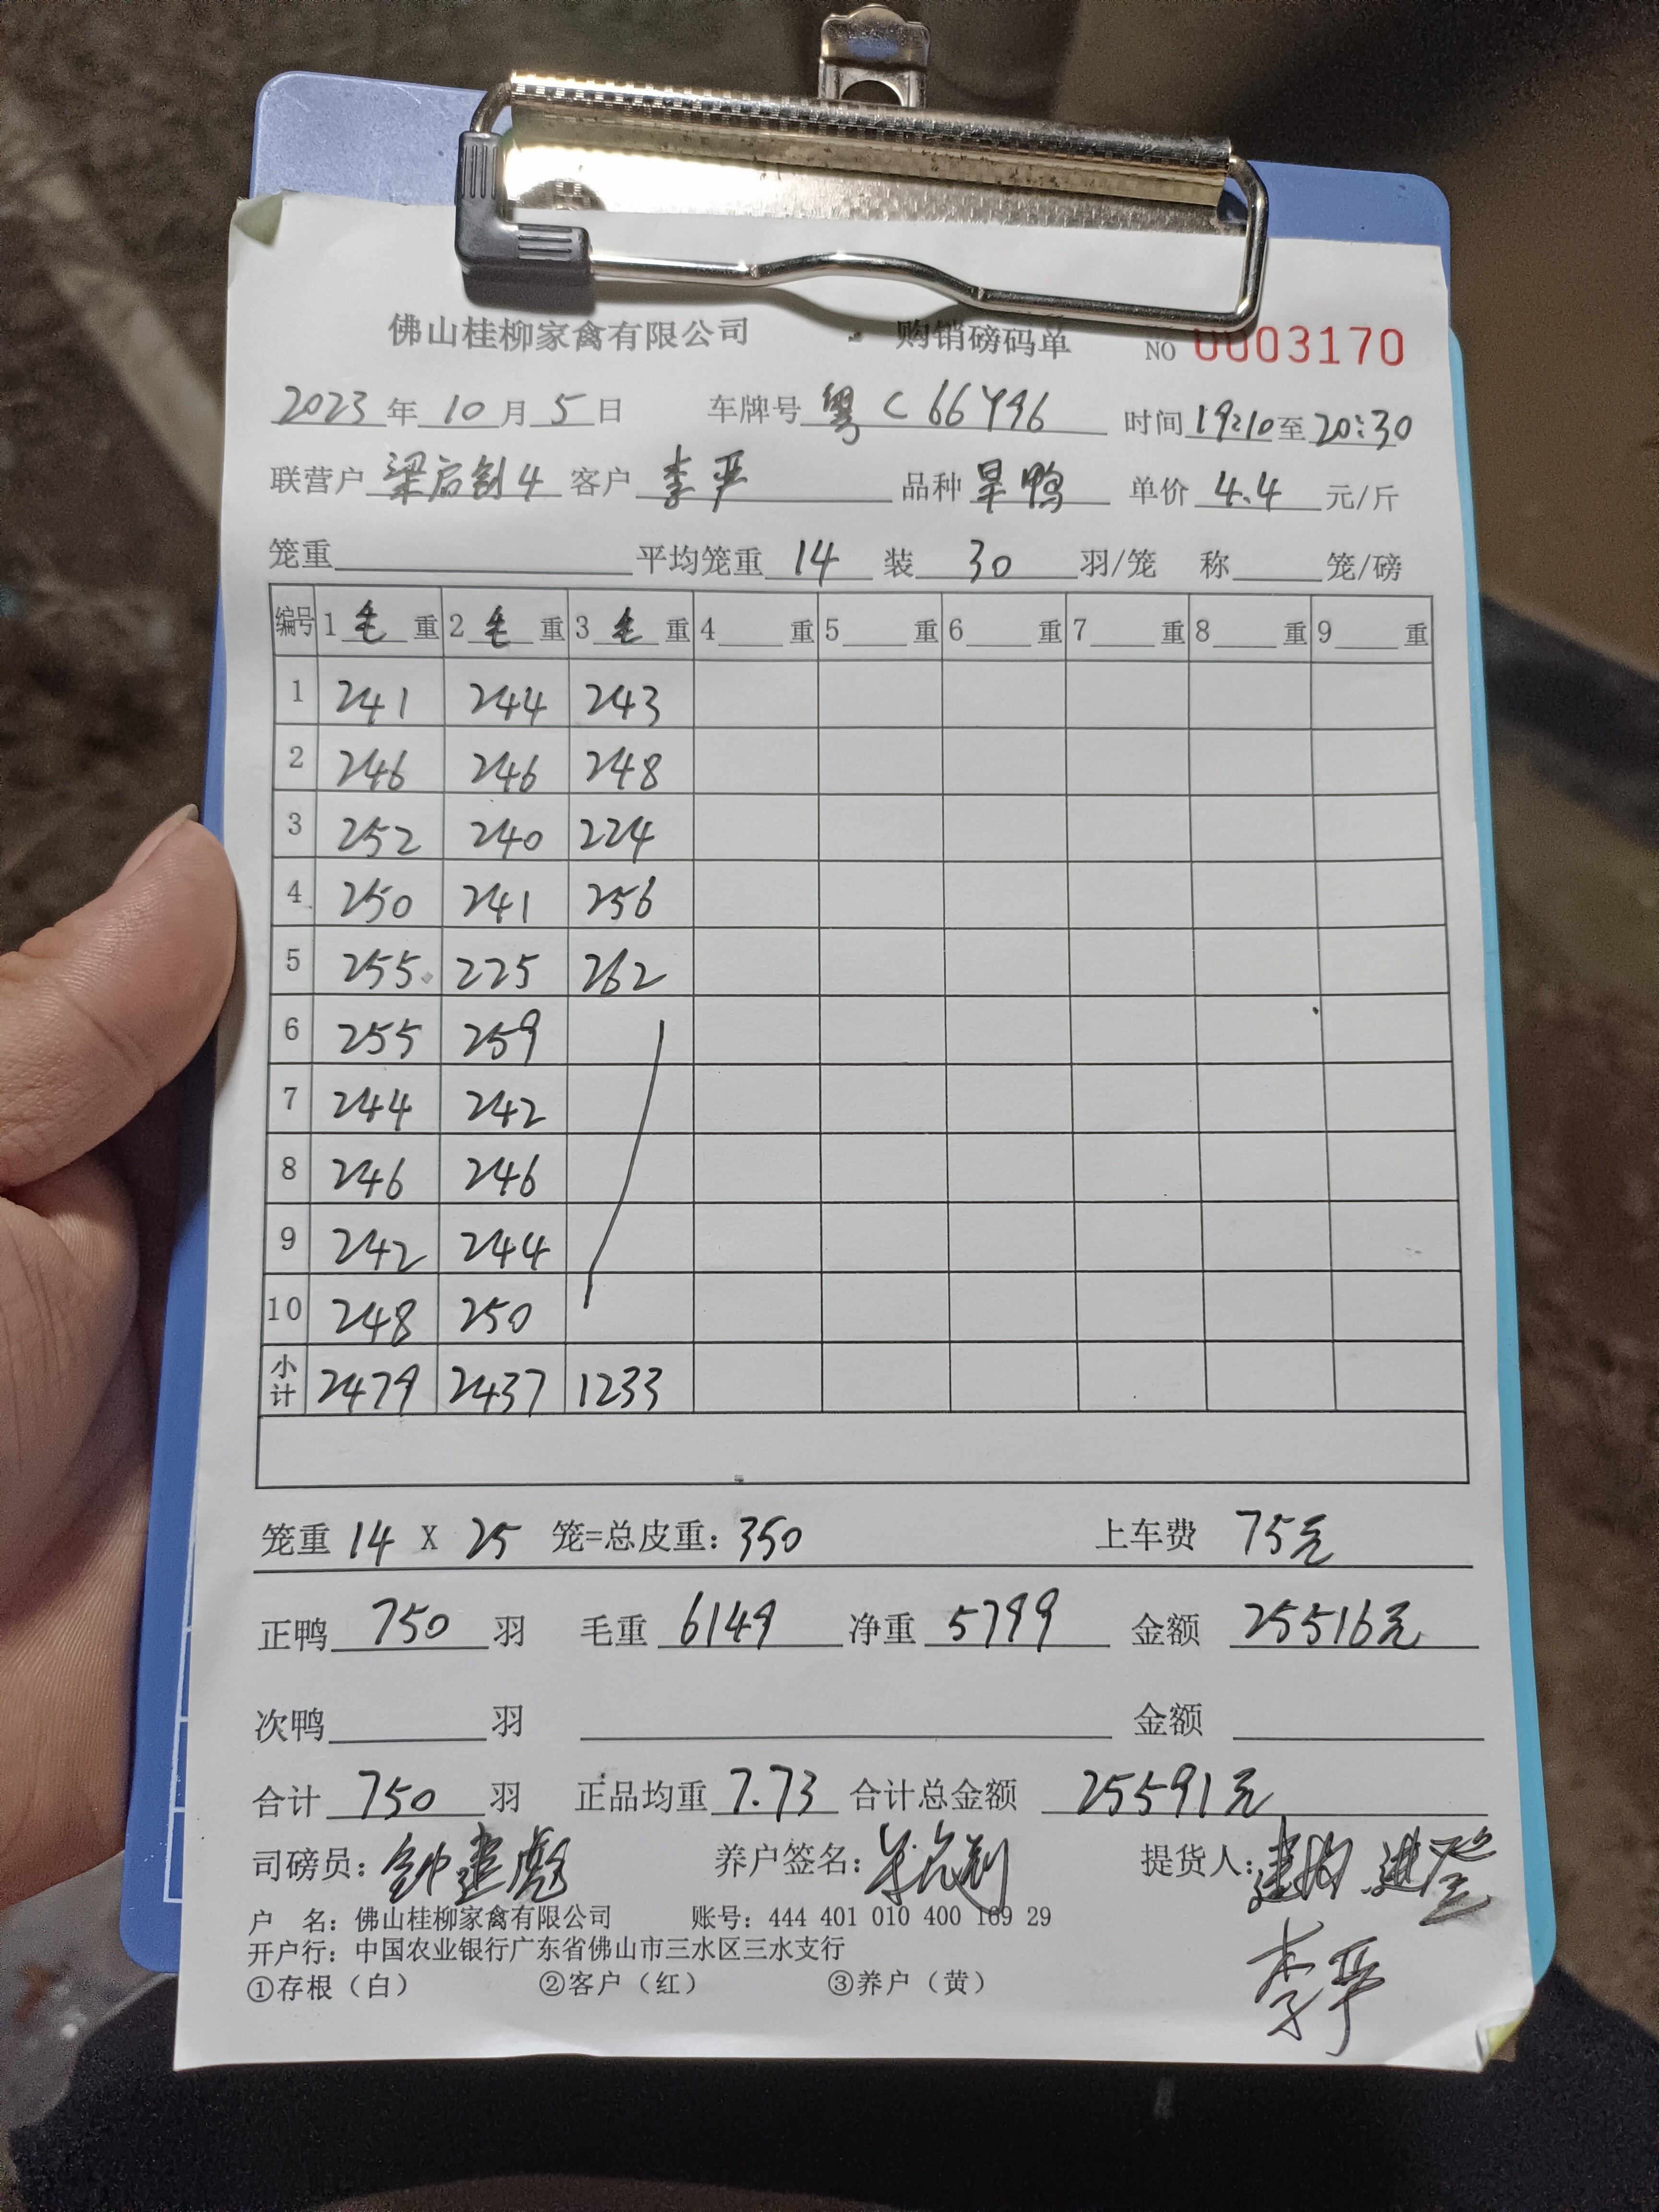 佛山桂柳家禽有限公司 购销磅码单 NO 0003170
2023年10月5日 车牌号 粤C66Y96 时间19:10至20:30
联营户 梁启创4 客户 李严 品种 旱鸭 单价 4.4 元/斤
笼重 平均笼重 14 装 30 羽/笼 称 笼/磅
编号 1 毛 重 2 毛 重 3 毛 重 4 重 5 重 6 重 7 重 8 重 9 重
1 241 244 243
2 246 246 248
3 252 240 224
4 250 241 256
5 255 225 262
6 255 259
7 244 242
8 246 246
9 242 244
10 248 250
小计 2479 2437 1233
笼重 14 X 25 笼=总皮重：350 上车费 75元
正鸭 750 羽 毛重 6149 净重 5799 金额 25516元
次鸭 羽 金额
合计 750 羽 正品均重 7.73 合计总金额 25591元
司磅员：钟建彪 养户签名： 提货人：
李严
户 名：佛山桂柳家禽有限公司 账号：444 401 010 400 169 29
开户行：中国农业银行广东省佛山市三水区三水支行
①存根（白） ②客户（红） ③养户（黄）